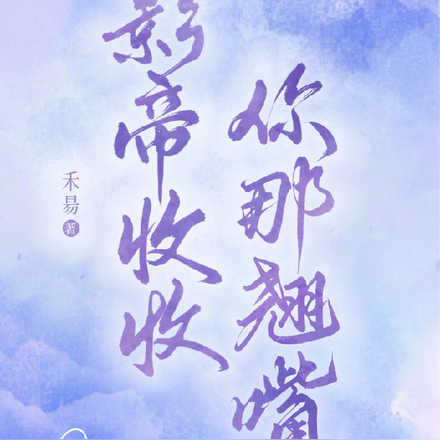 影帝收收
你那翘嘴
禾易著